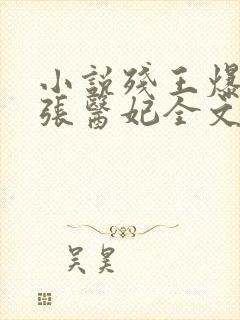 小說殘王爆
張醫妃全文
吴昊